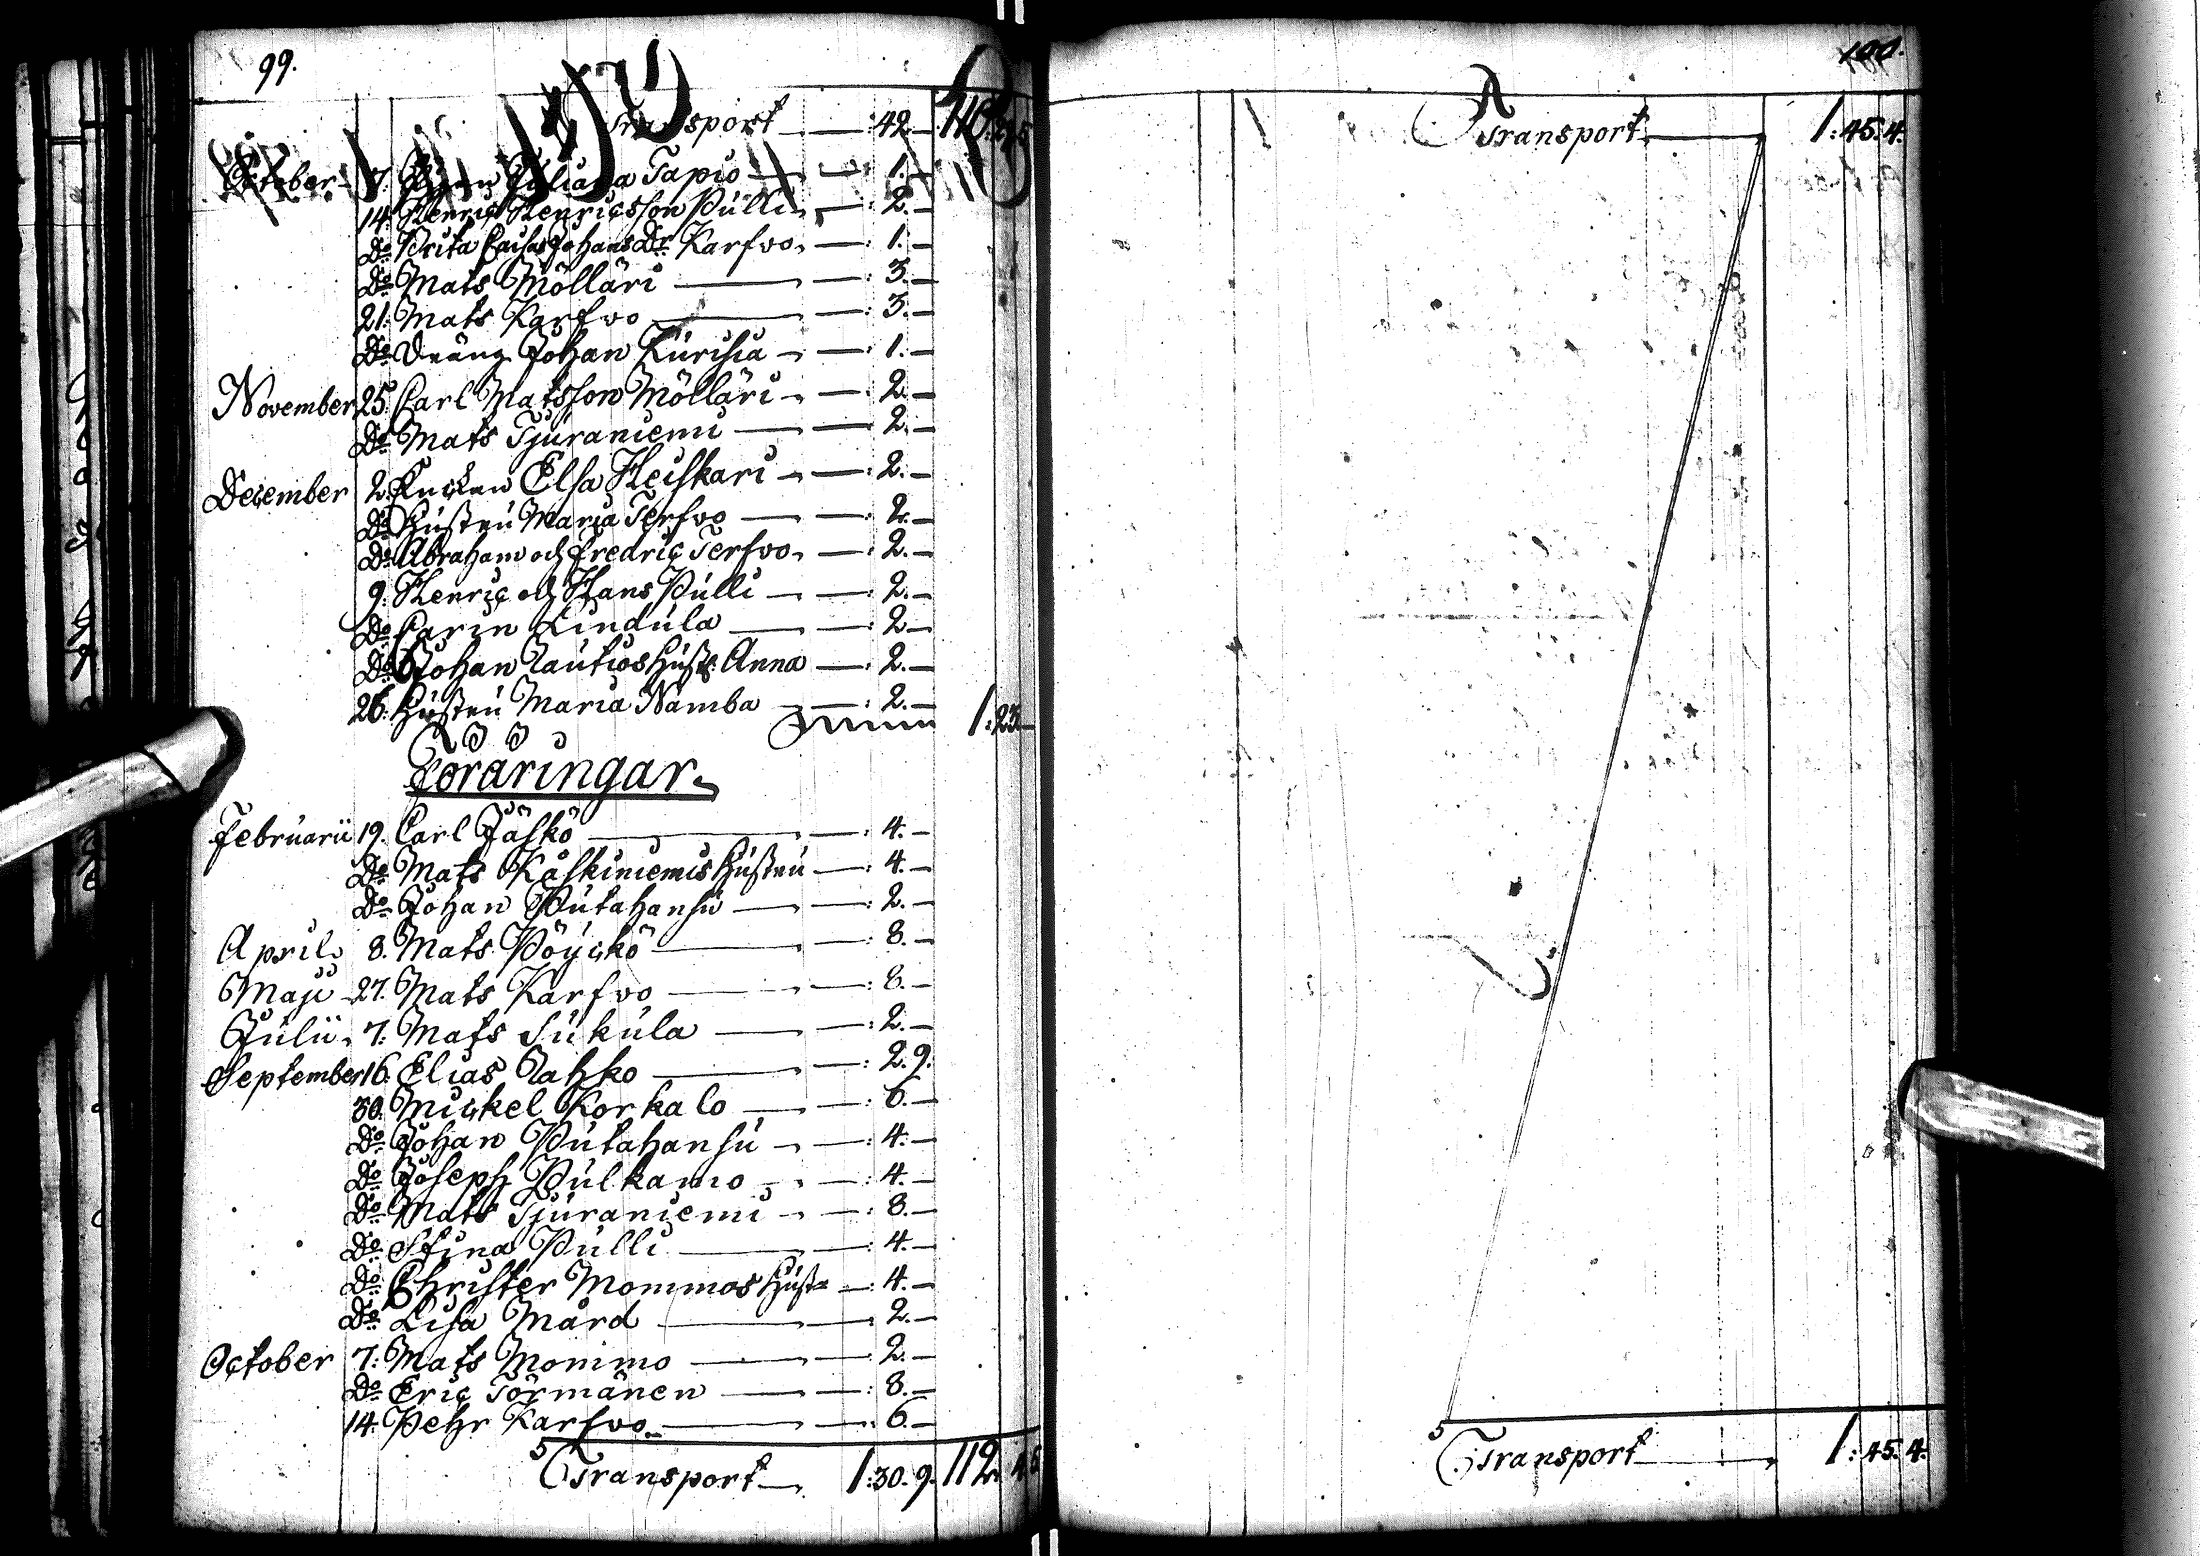 99.
Transport — : 42.— 110:
October 7. Juliana Tapio — : 1.—
14. Henriç Henriçsson Pulli — : 2.—
D:o Brita Caisa Johans D:r Karfwo — : 1.—
D:o Mats Mölläri — : 3.—
21. Mats Karfwo — : 3.—
D:o Dräng Johan Kurisia — : 1.—
November 25. Carl Matsson Mölläri — : 2.—
D:o Mats Tjuraniemi — : 2.—
December 2. Enckan Elsa Heiskari — : 2.—
D:o Hustru Maria Terfwo — : 2.—
D:o Abraham och Fredriç Terfwo — : 2.—
9. Henriç och Hans Pulli — : 2.—
D:o Carin Lindula — : 2.—
D:o Johan Rautios Hust: Anna — : 2.—
26. Hustru Maria Namba — : 2.—
1: 23.—
Föräringar
Februarii 19. Carl Jäskö — : 4.—
D:o Mats Kaskiniemis Hustru — : 4.—
D:o Johan Putahansu — : 2.—
April 8. Mats Pöyckö — : 8.—
Maji 27. Mats Karfwo — : 8.—
Julii 7. Mats Sukula — : 2.—
September 16. Elias Rahko — : 2. 9.
30. Mickel Korkalo — : 6.—
D:o Johan Putahansu — : 4.—
D:o Joseph Pulkamo — : 4.—
D:o Mats Tjuraniemi — : 8.—
D:o Stina Pulli — : 4.—
D:o Christer Mommos Hust: — : 4.—
D:o Lisa Mård — : 2.—
October 7. Mats Mommo — : 2.—
D:o Eriç Törmänen — : 8.—
14. Pehr Karfwo — : 6.—
Transport — 1: 30. 9. 112: 45
100.
Transport — 1: 45. 4.
Transport — 1: 45. 4.